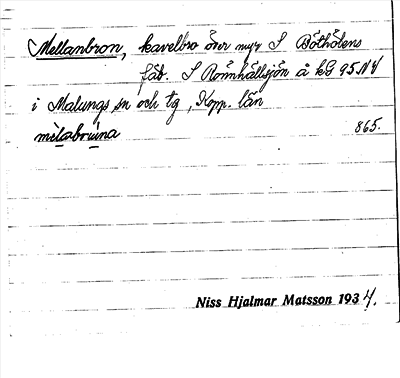 Mellanbron, kavelbro över myr S Böthölens
fäb. S Rönnhållsjön å kG 95 NV
i Malungs sn och tg, Kopp. län
mèlabruùna 865.
Niss Hjalmar Matsson 1934.